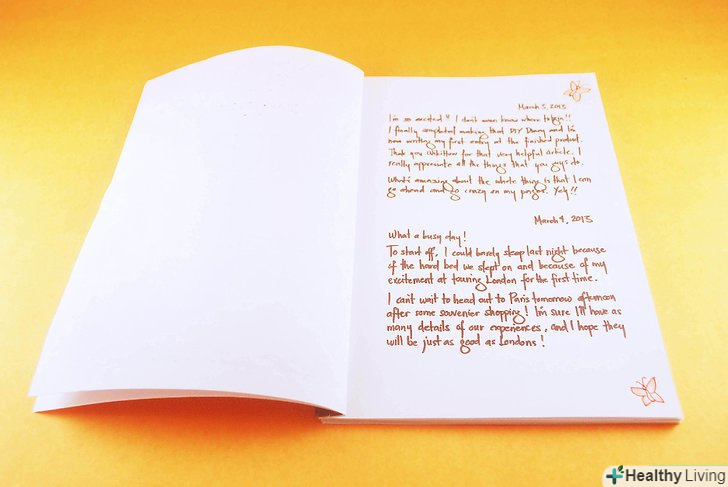 March 3, 2013
I'm so excited!! I don't even know where to begin!!
I finally completed making that DIY Diary and I'm
now writing my first entry at the finished product.
Thank you wikiHow for that very helpful article. I
really appreciate all the things that you guys do.
What's amazing about the whole thing is that I can
go ahead and go crazy on my pages. Yey!!
March 4, 2013
What a busy day!
To start off, I could barely sleep last night because
of the hard bed we slept on and because of my
excitement at touring London for the first time.
I can't wait to head out to Paris tomorrow afternoon
after some souvenir shopping! I'm sure I'll have as
many details of our experiences, and I hope they
will be just as good as Londons!
Healthy Living